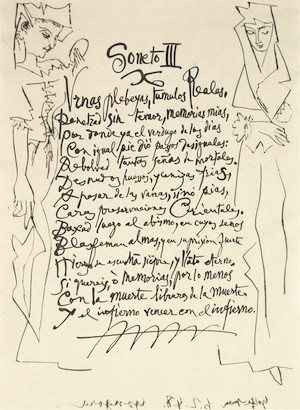 Soneto III
Urnas plebeyas, Tumulos Reales,
Penetrad sin temor, memorias mias,
Por donde ya el verdugo de los dias
Con igual pie dió pasos desiguales.
Rebolved tantas señas de mortales,
Desnudos huesos, y cenizas frias,
A pesar de las vanas, si no pias,
Caras preservaciones Orientales.
Baxad luego al abismo, en cuyos senos
Blasfeman almas, y en su prision fuerte
Hierros se escuchan siempre, y llanto eterno,
Si quereis, o memorias, por lo menos
Con la muerte libraros de la Muerte
Y el infierno vencer con el infierno.